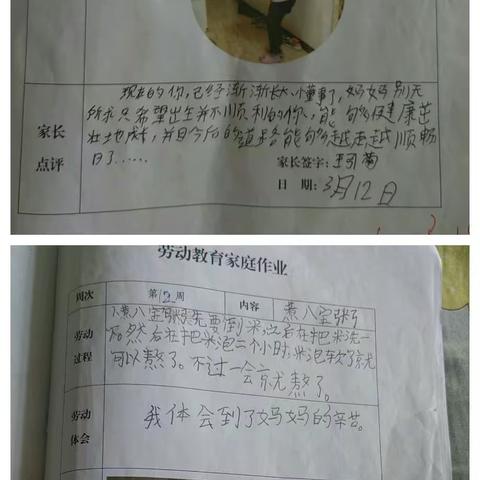 现在的你,已经渐渐长大,懂事了,妈妈别无
所求只希望出生并不顺利的你,能够健康茁
壮地成长,并且今后的道路能够越走越顺畅
家长
点评
日子……
家长签字:
日期:3月12日
劳动教育家庭作业
周次
第2周
内容
熬八宝粥
劳动
过程
熬八宝粥先要倒米,之后在把米洗一
下然后在把米泡二个小时,米泡软了就
可以熬了。不过一会就熬了。
劳动
体会
我体会到了妈妈的辛苦。